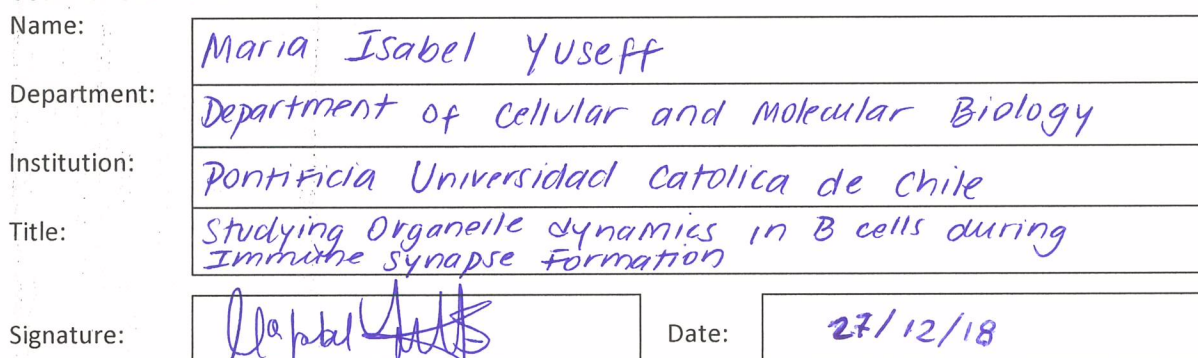 Name: Maria Isabel Yuseff
Department: Department of Cellular and Molecular Biology
Institution: Pontificia Universidad Catolica de Chile
Title: Studying Organelle dynamics in B cells during
Immune Synapse Formation
Signature: Date: 27/12/18